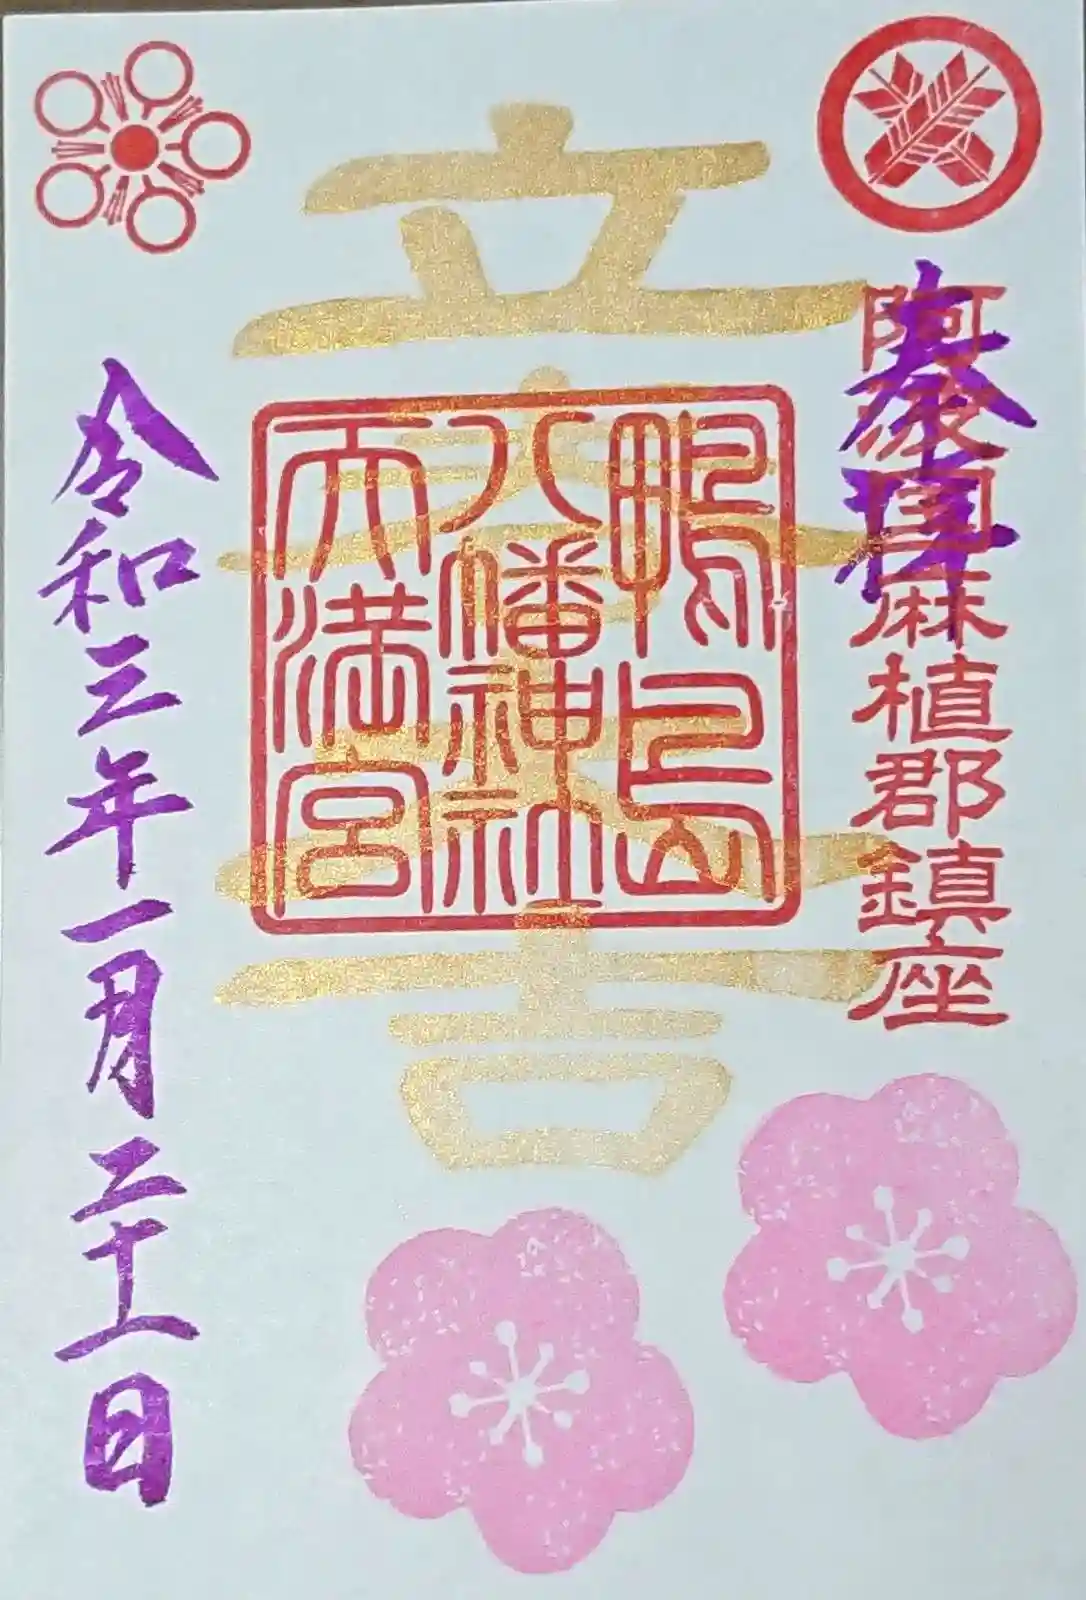 奉拝
阿波国麻植郡鎮座
立春大吉
鴨島
八幡神社
天満宮
令和三年一月二十一日